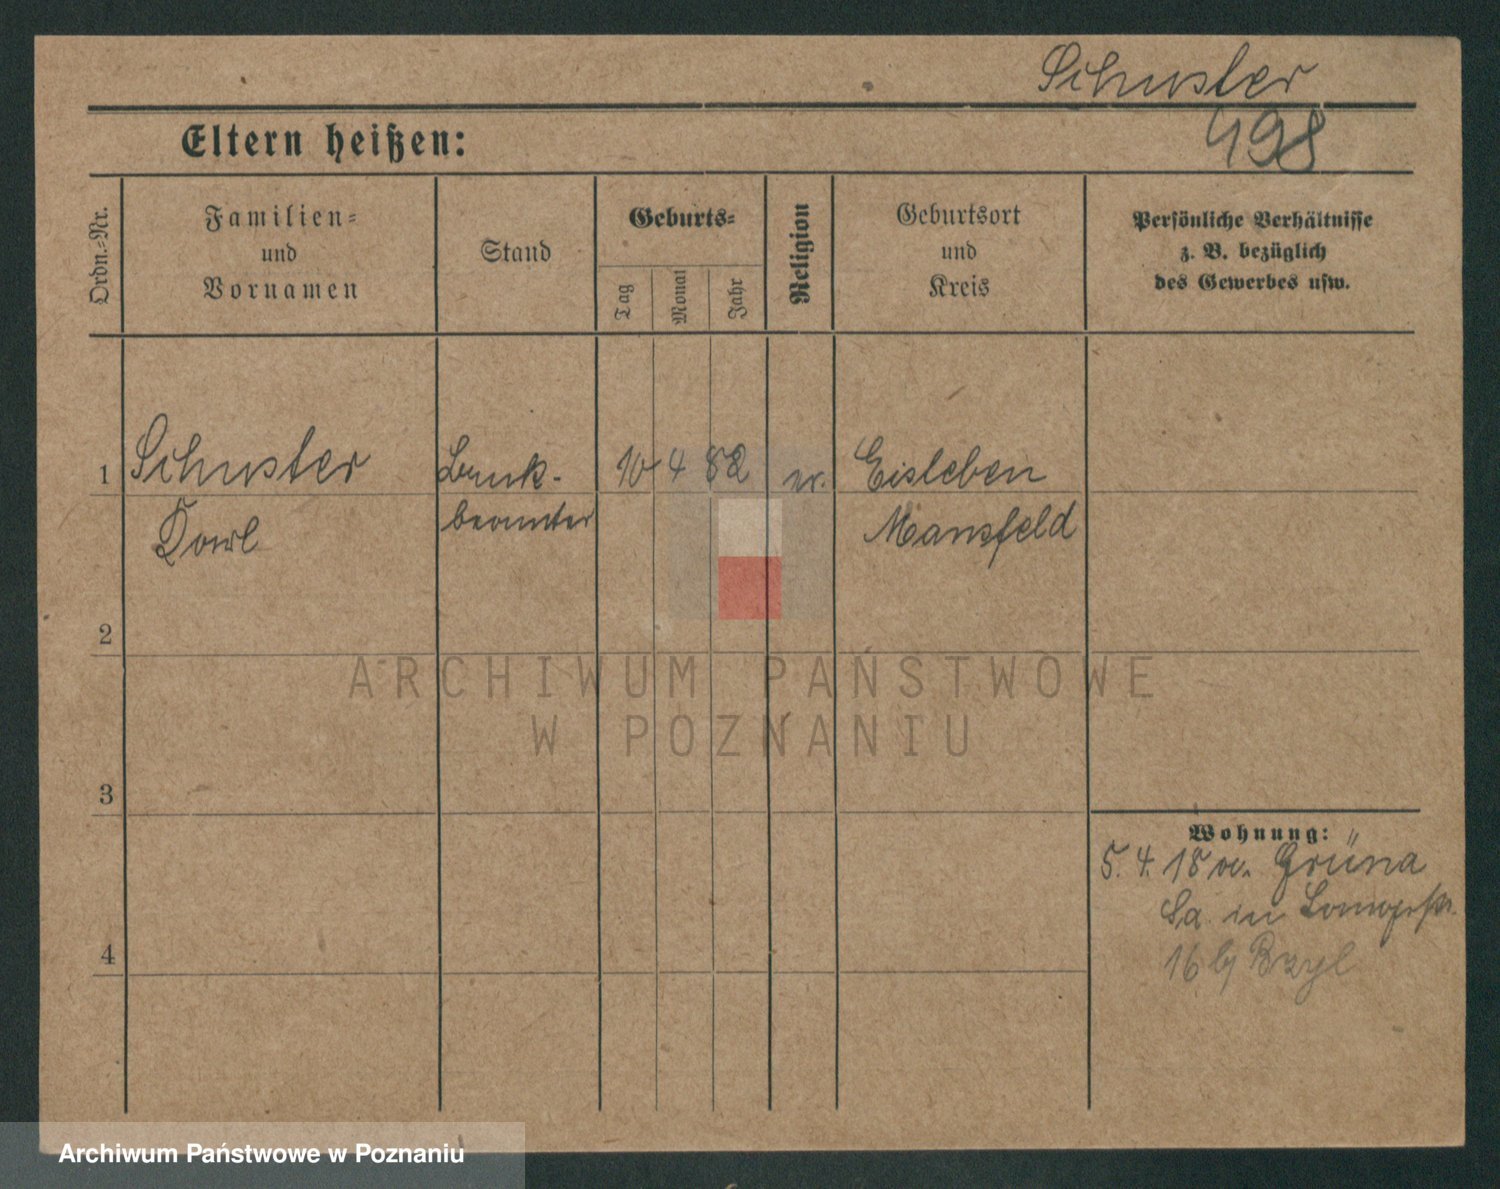 Schuster
498
Eltern heißen:
Ordn.-Nr.
Familien-
und
Vornamen
Stand
Geburts-
Tag
Monat
Jahr
Religion
Geburtsort
und
Kreis
Persönliche Verhältnisse
z. B. bezüglich
des Gewerbes usw.
1 Schuster Bank- 10 4 82 ev. Eisleben
Karl beamter Mansfeld
2
3
4
Wohnung:
5. 4. 18 Grüna
Sa. in
16 b/ Brzyl
ARCHIWUM PAŃSTWOWE
W POZNANIU
Archiwum Państwowe w Poznaniu